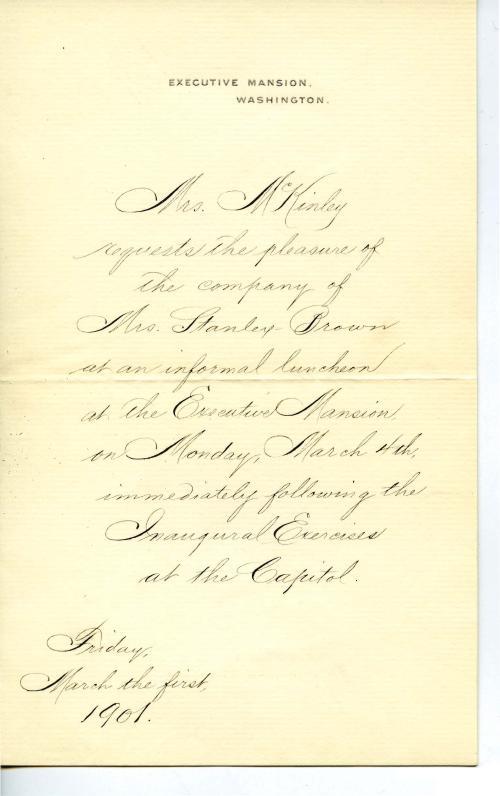 EXECUTIVE MANSION,
WASHINGTON.
Mrs. McKinley
requests the pleasure of
the company of
Mrs. Stanley-Brown
at an informal luncheon
at the Executive Mansion,
on Monday, March 4th,
immediately following the
Inaugural Exercises
at the Capitol.
Friday,
March the first,
1901.